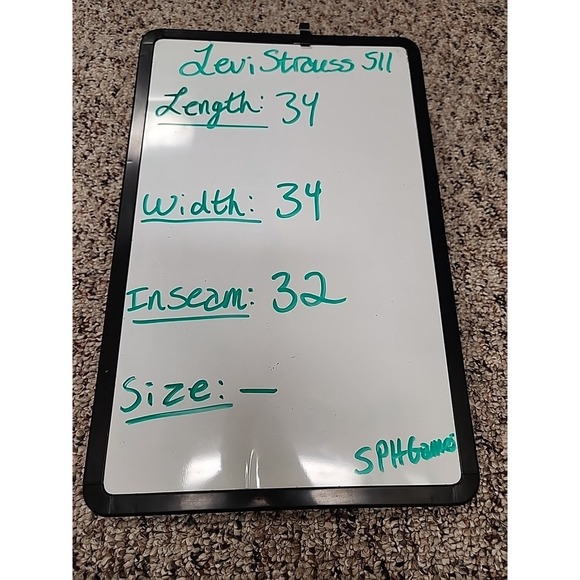 Levi Strauss 511
Length: 34
Width: 34
Inseam: 32
Size: —
SPHGame